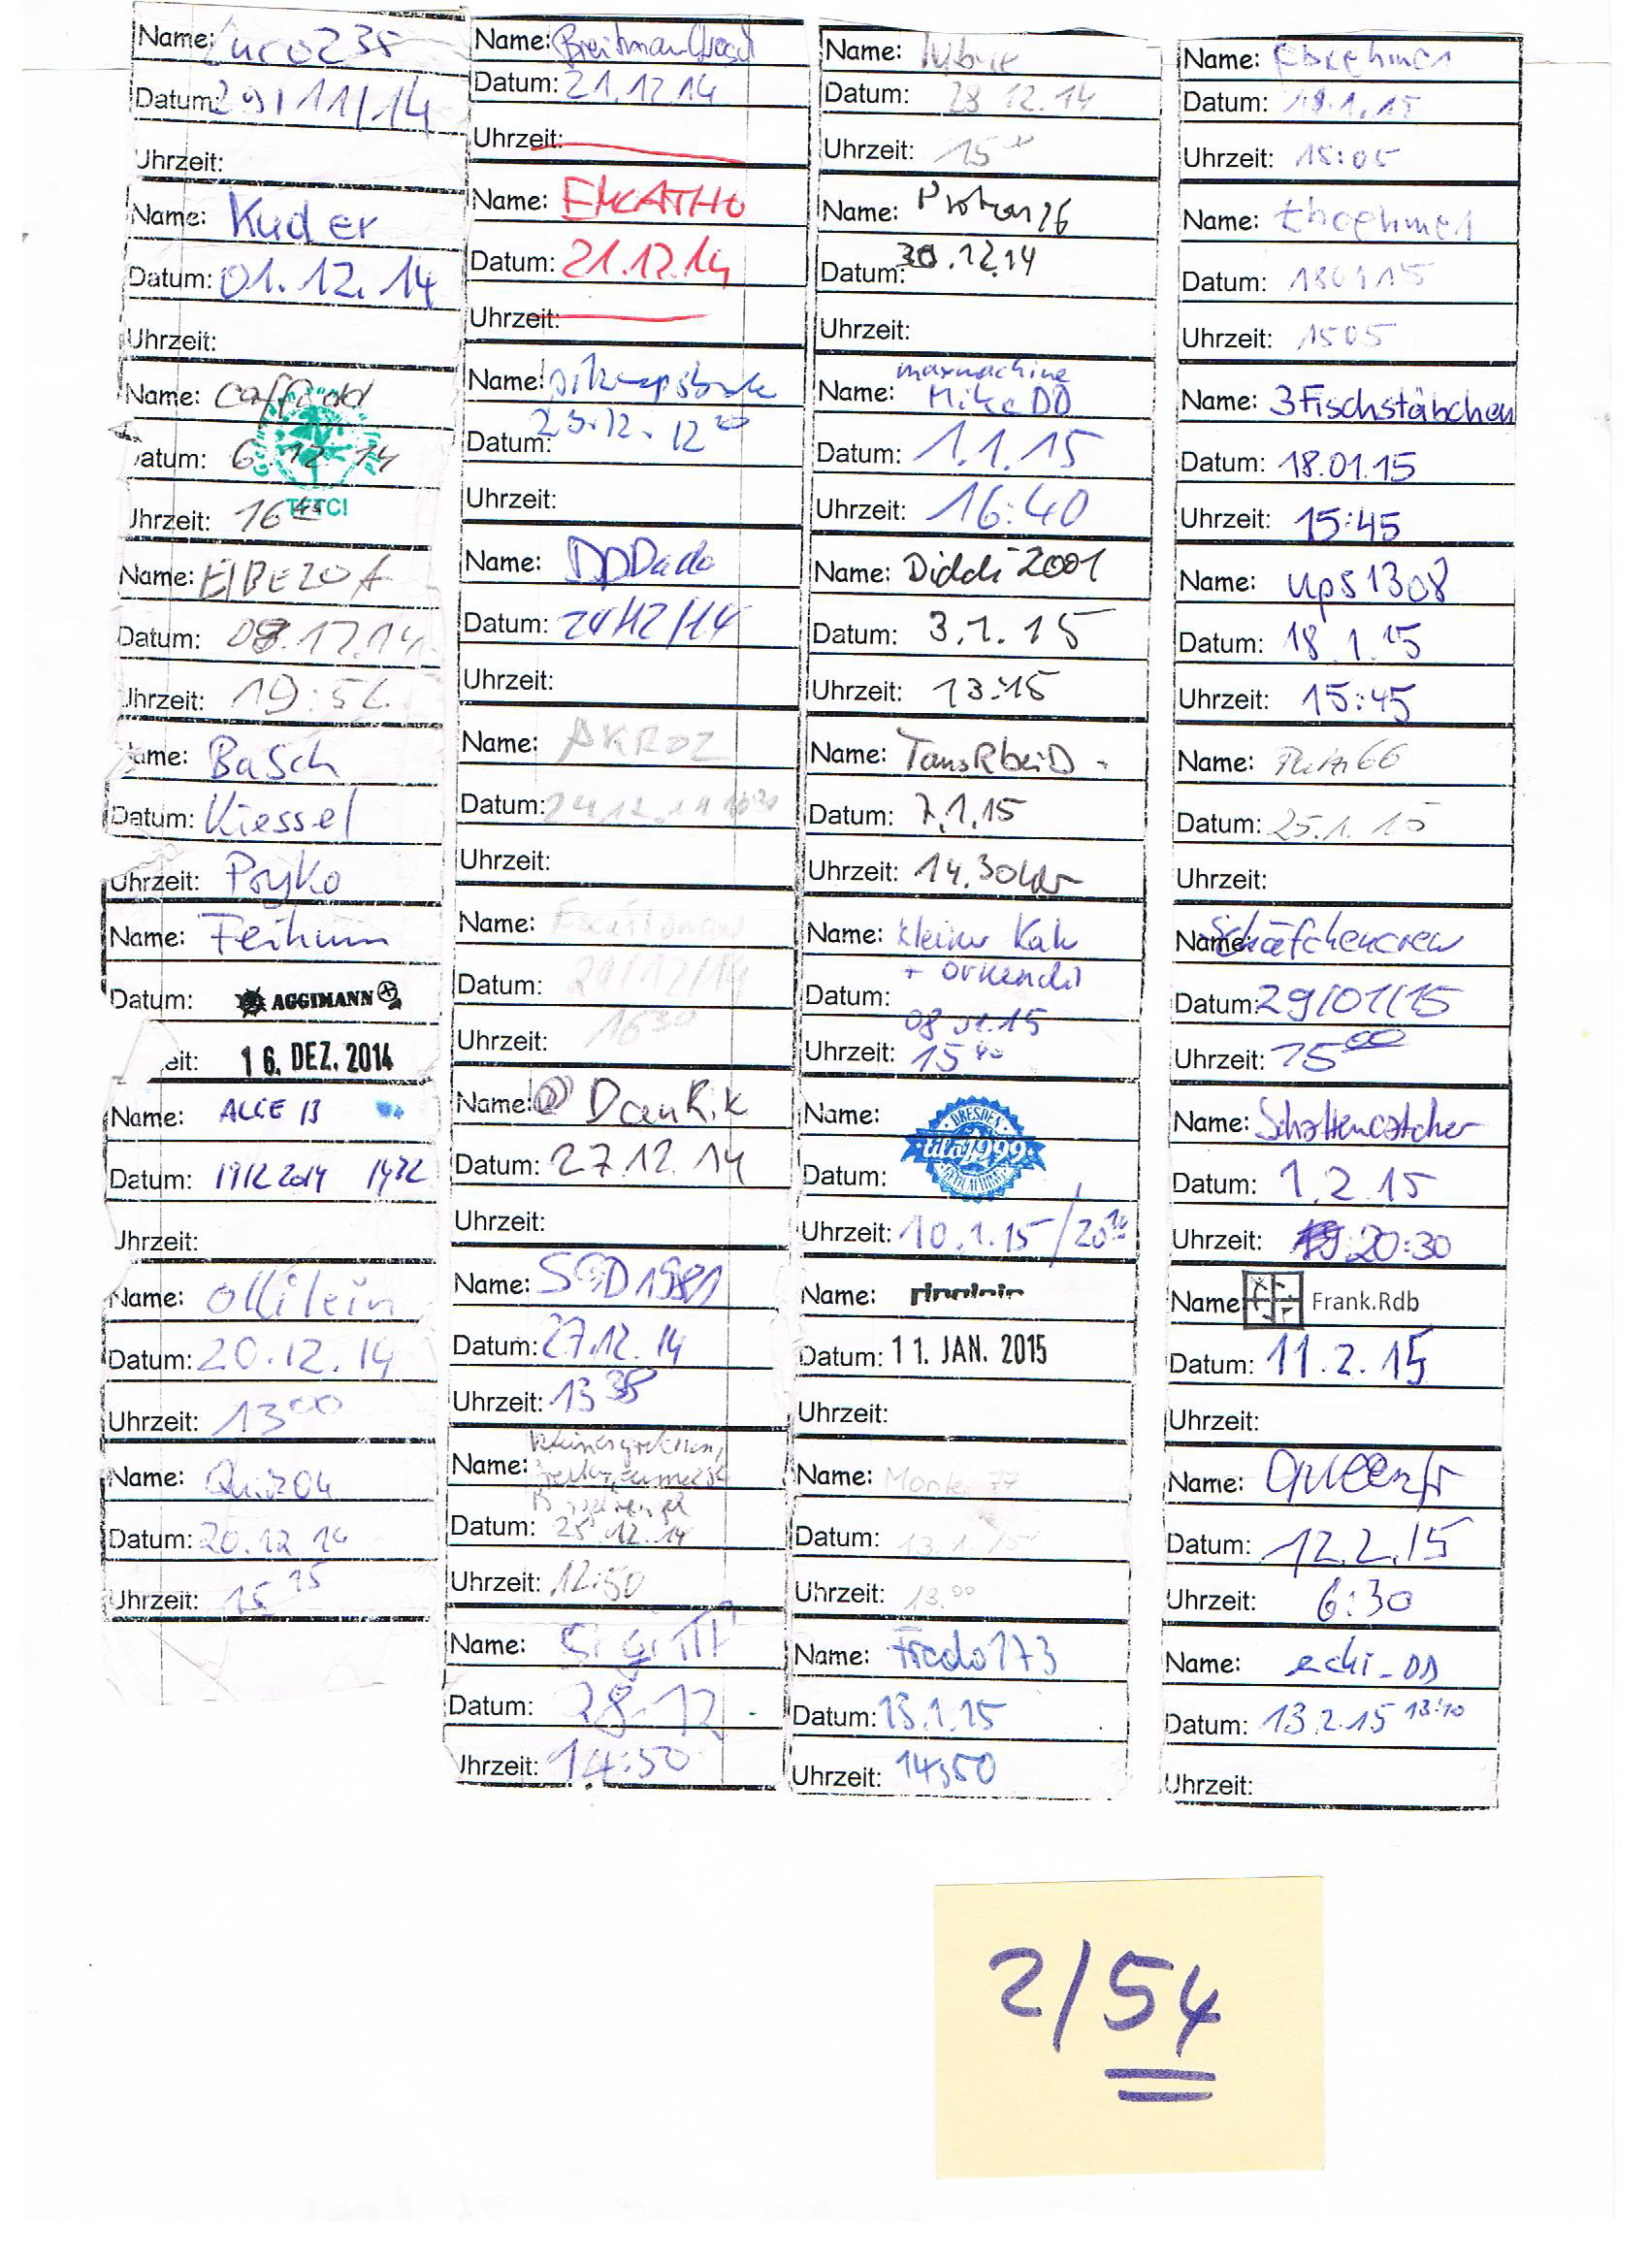 Name: Luco235
Datum: 29/11/14
Uhrzeit:
Name: Kuder
Datum: 01.12.14
Uhrzeit:
Name:
Datum: 6.12.14
Uhrzeit: 16 45
TFTC!
Name: ElBE20A
Datum: .12.14
Uhrzeit: 19:5
Name: Basch
Datum: Kiessel
Uhrzeit: Psyko
Name:
Datum: AGGIMANN
eit: 16. DEZ. 2014
Name: ALGE 13
Datum: 1912 2014 1432
Uhrzeit:
Name: ollilein
Datum: 20.12.14
Uhrzeit: 13 00
Name: Quiz04
Datum: 20.12 14
Uhrzeit: 15 15
Name:
Datum: 21.12.14
Uhrzeit:
Name: EMKATHO
Datum: 21.12.14
Uhrzeit:
Name:
Datum: 23.12. 12
Uhrzeit:
Name: DDDado
Datum: 24/12/14
Uhrzeit:
Name: AKROZ
Datum: 24.12.14
Uhrzeit:
Name:
Datum: /12/14
Uhrzeit: 16 30
Name: DanRik
Datum: 27.12.14
Uhrzeit:
Name: SGD1981
Datum: 27.12.14
Uhrzeit: 13 38
Name:
Datum: 25.12.14
Uhrzeit: 12:50
Name:
Datum: 28.12
Uhrzeit: 14:50
Name:
Datum: 28 12.14
Uhrzeit: 15
Name:
Datum: 30.12.14
Uhrzeit:
maxmachine
Name: MikeDD
Datum: 1.1.15
Uhrzeit: 16:40
Name: Diddi2001
Datum: 3.1.15
Uhrzeit: 13:15
Name: TansRbeiD
Datum: 7.1.15
Uhrzeit: 14.30Uhr
Name: kleiner Kak
+
Datum:
08.01.15
Uhrzeit: 15
Name: DRESDEN
Datum: ulli1999
Uhrzeit: 10.1.15 /20
Name:
Datum: 11. JAN. 2015
Uhrzeit:
Name: 77
Datum: 13.1.15
Uhrzeit: 13.00
Name: Frodo173
Datum: 13.1.15
Uhrzeit: 14:50
Name: Eboehmer
Datum: 18.1.15
Uhrzeit: 15:05
Name: Eboehmer
Datum: 180115
Uhrzeit: 1505
Name: 3Fischstäbchen
Datum: 18.01.15
Uhrzeit: 15:45
Name: ups1308
Datum: 18.1.15
Uhrzeit: 15:45
Name:
Datum: 25.1.15
Uhrzeit:
Name: Schäfchencrew
Datum: 29/01/15
Uhrzeit: 15 00
Name: Schattencatcher
Datum: 1.2.15
Uhrzeit: 20:30
Name: Frank.Rdb
Datum: 11.2.15
Uhrzeit:
Name:
Datum: 12.2.15
Uhrzeit: 6:30
Name: echi-DD
Datum: 13.2.15 13:10
Uhrzeit:
2/54